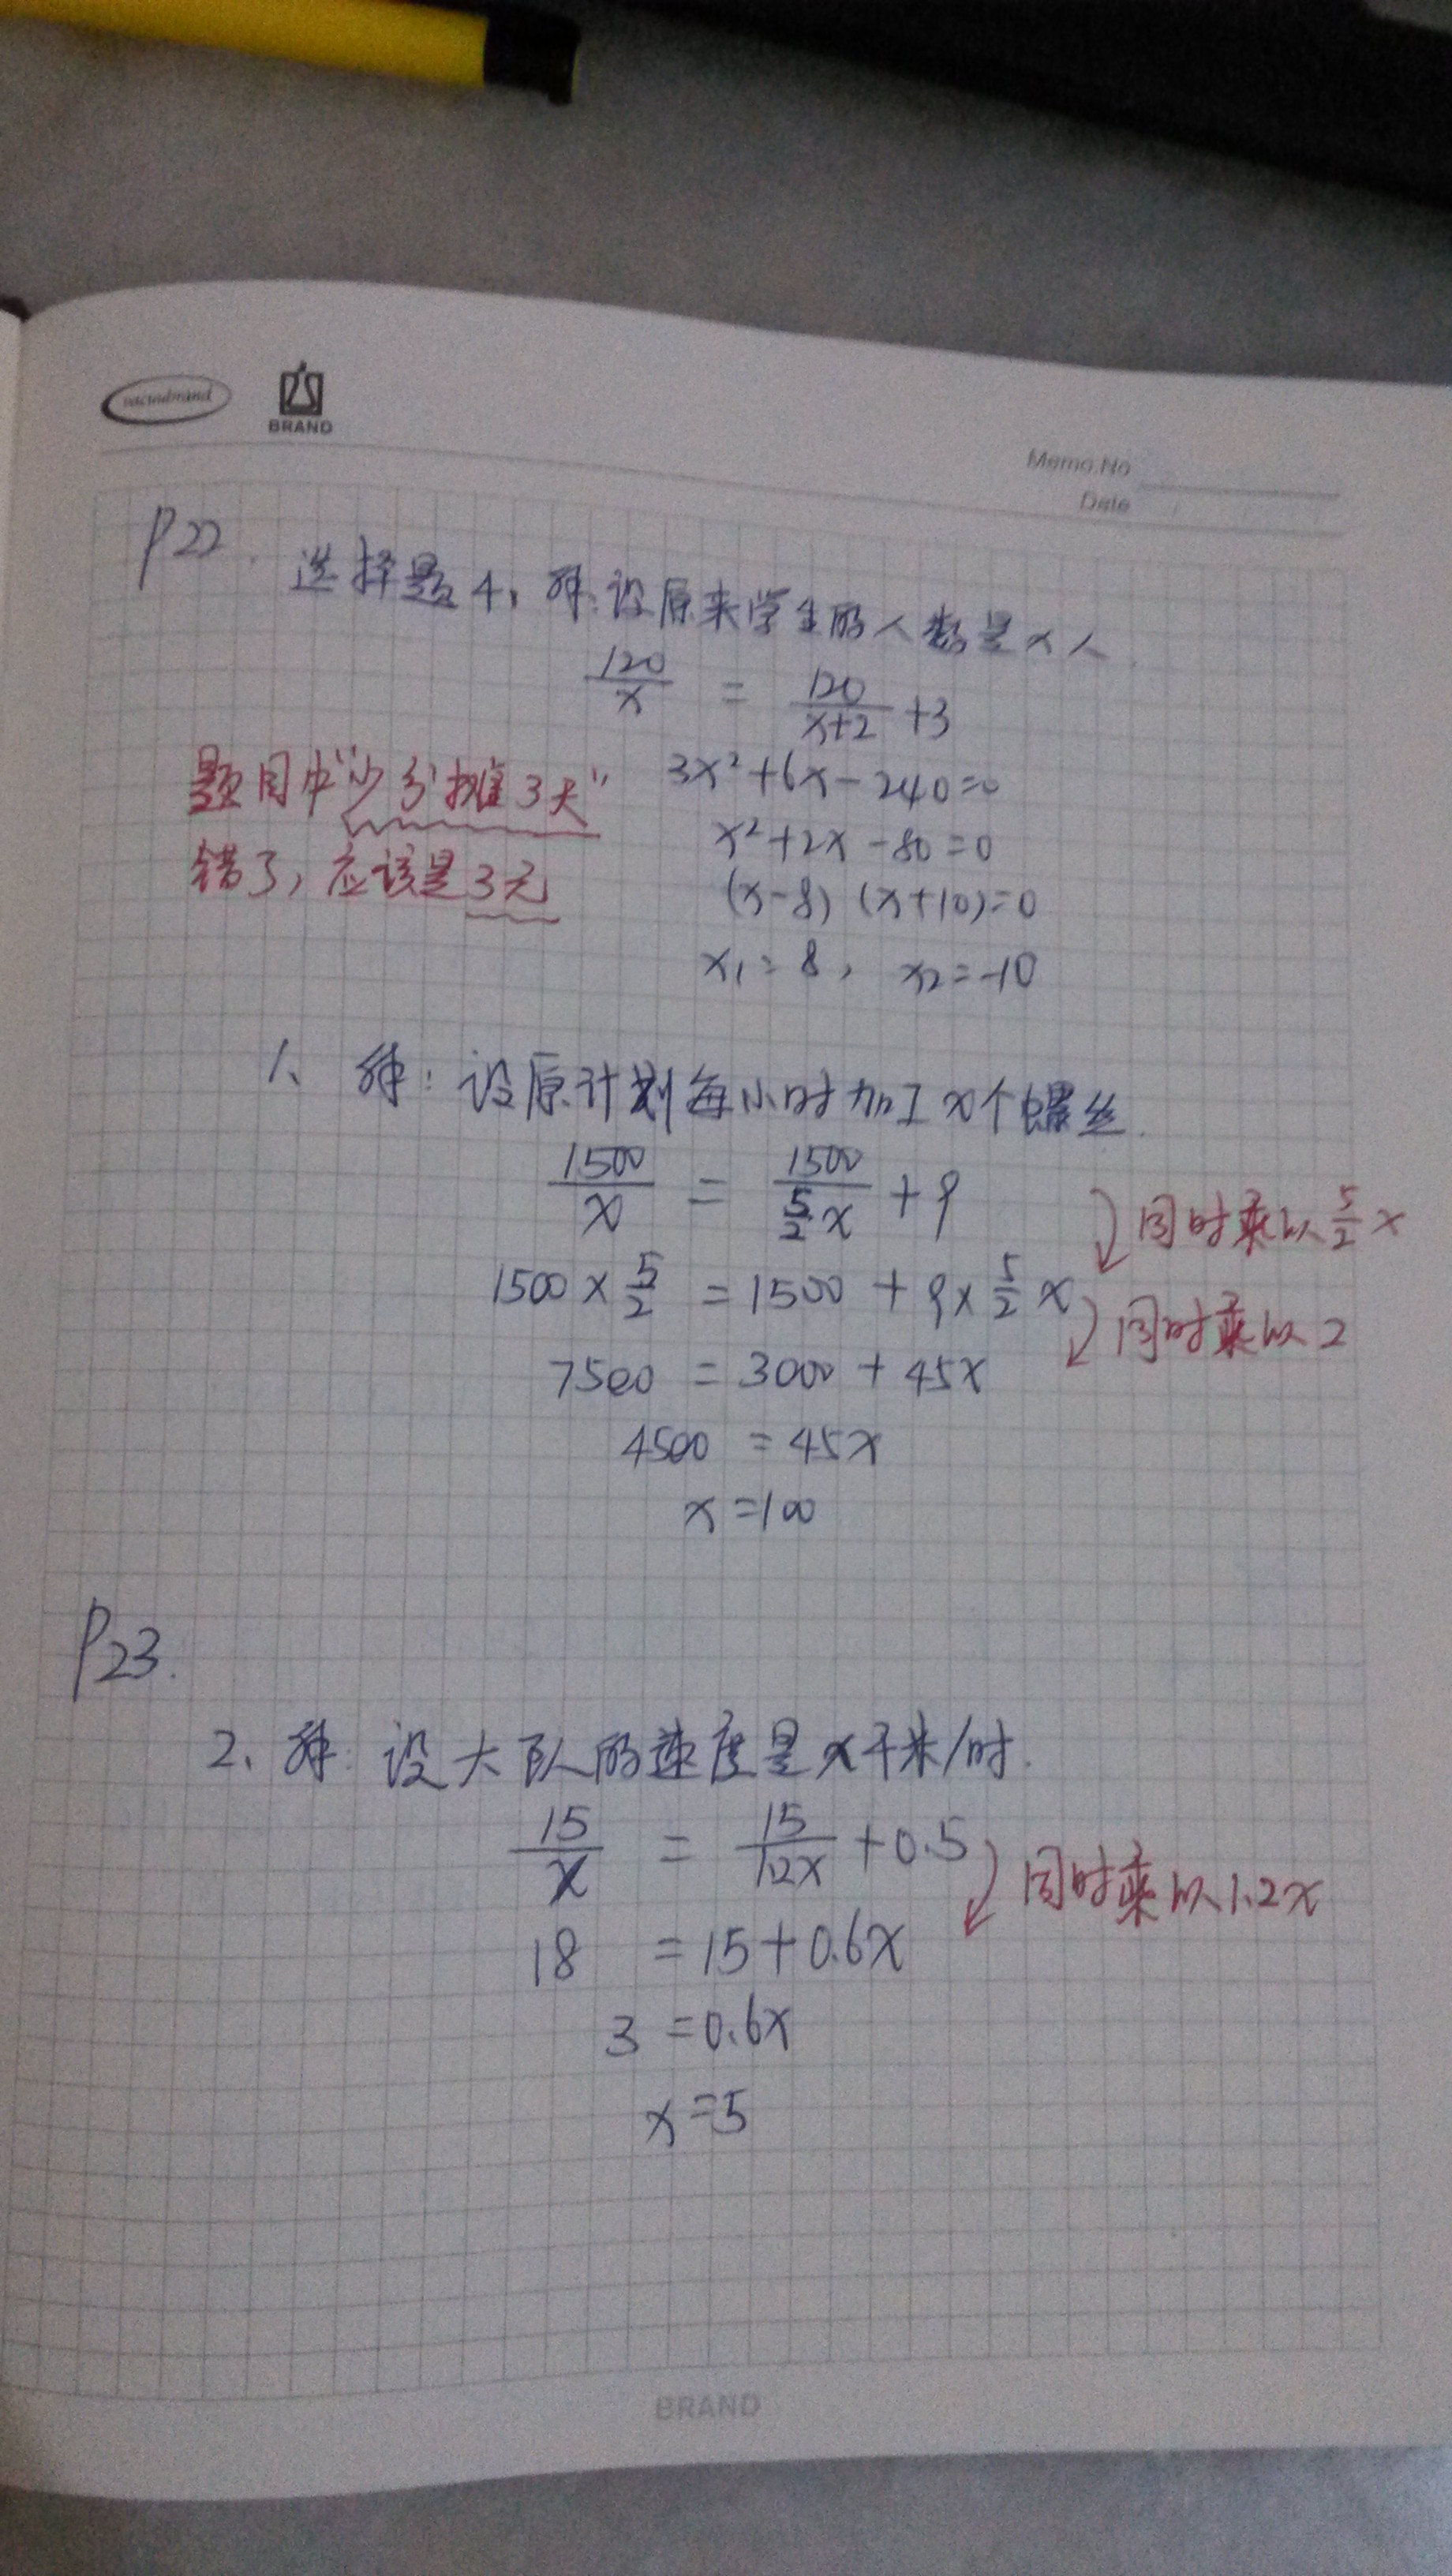 vacuubrand
BRAND
Memo.No
Date
P22.
选择题4、解:设原来学生的人数是x人.
120/x = 120/(x+2) +3
题目中“少分摊3天”
错了,应该是3元
3x²+6x-240=0
x²+2x-80=0
(x-8)(x+10)=0
x₁=8, x₂=-10
1、解:设原计划每小时加工x个螺丝.
1500/x = 1500/(5/2 x) + 9
同时乘以5/2 x
1500×5/2 = 1500 + 9×5/2 x
同时乘以2
7500 = 3000 + 45x
4500 = 45x
x=100
P23.
2、解:设大队的速度是x千米/时.
15/x = 15/1.2x +0.5
同时乘以1.2x
18 =15+0.6x
3 =0.6x
x=5
BRAND